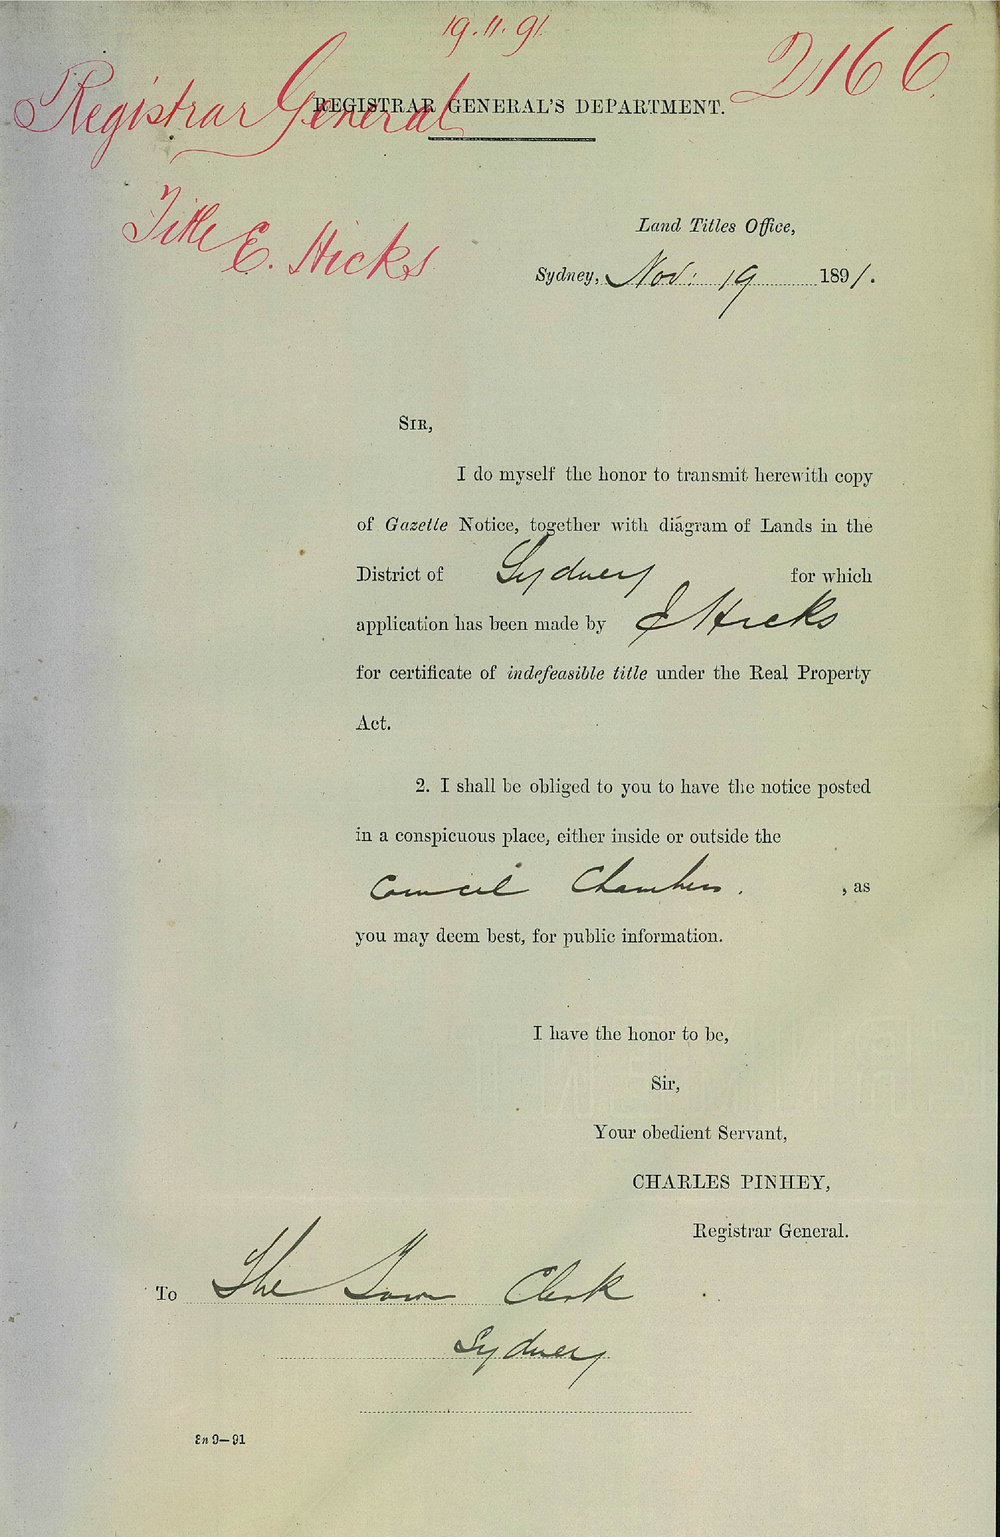 19.11.91
2166
Registrar General
REGISTRAR GENERAL'S DEPARTMENT.
Title E. Hicks
Land Titles Office,
Sydney, Nov: 19 1891.
SIR,
I do myself the honor to transmit herewith copy
of Gazette Notice, together with diagram of Lands in the
District of Sydney for which
application has been made by E Hicks
for certificate of indefeasible title under the Real Property
Act.
2. I shall be obliged to you to have the notice posted
in a conspicuous place, either inside or outside the
Council Chambers. , as
you may deem best, for public information.
I have the honor to be,
Sir,
Your obedient Servant,
CHARLES PINHEY,
Registrar General.
To The Town Clerk
Sydney
9—91